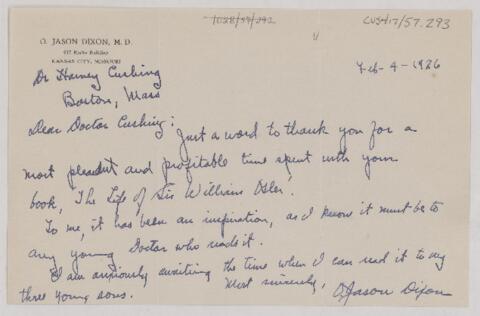 1028/57/292
CUSH17/57.293
O. JASON DIXON, M. D.
KANSAS CITY, MISSOURI
Feb-4-1926
Dr Harvey Cushing
Boston, Mass
Dear Doctor Cushing:
Just a word to thank you for a
most pleasant and profitable time spent with your
book, The Life of Sir William Osler.
To me, it has been an inspiration, as I know it must be to
any young Doctor who reads it.
I am anxiously awaiting the time when I can read it to my
three young sons.
Most sincerely,
O Jason Dixon